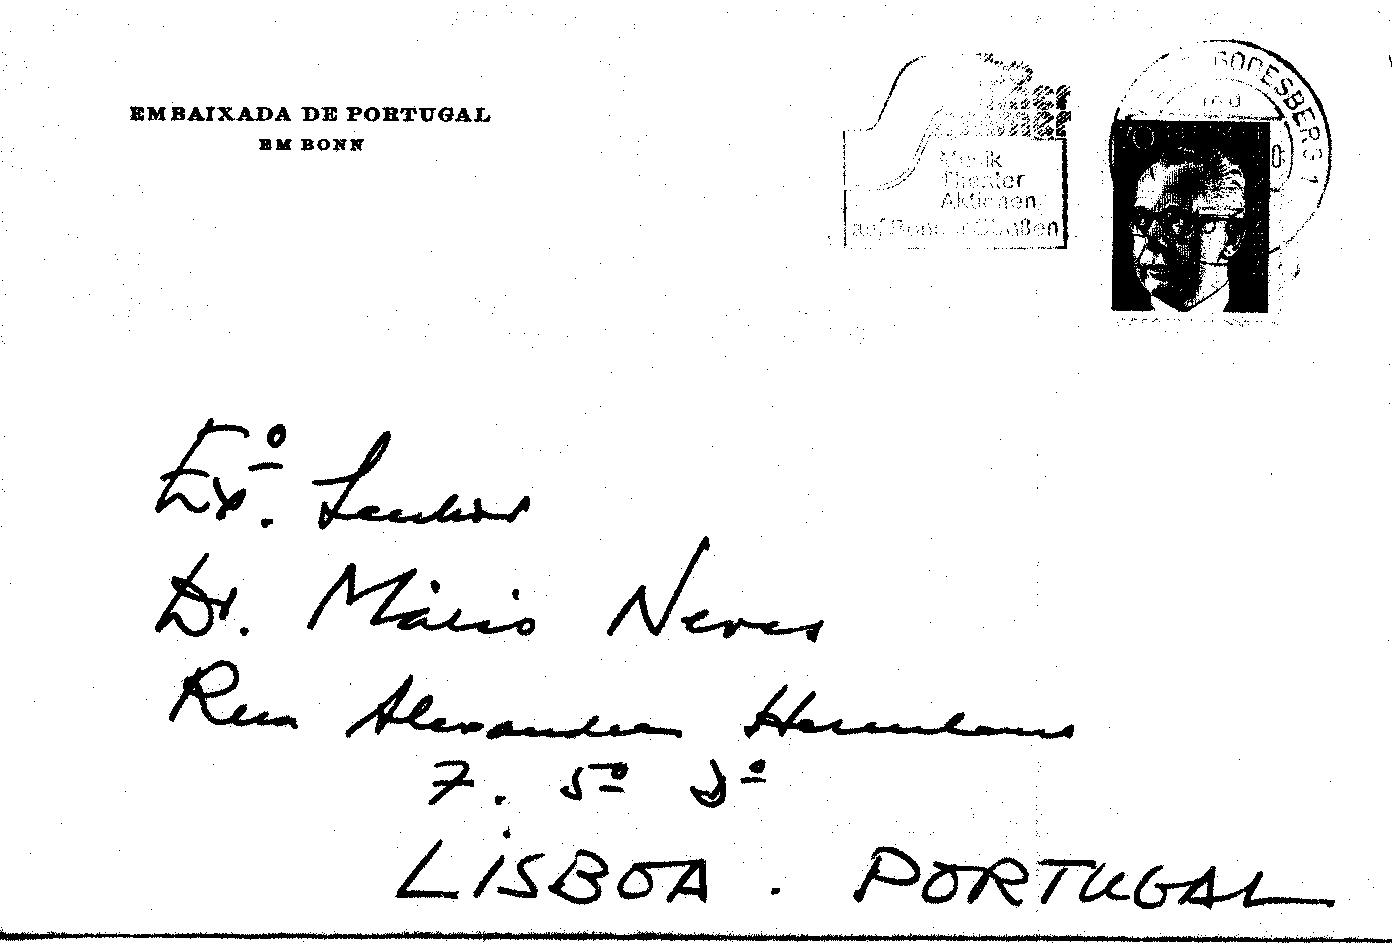 EMBAIXADA DE PORTUGAL
EM BONN
Musik
Theater
Aktionen
GODESBERG 1
Exº. Senhor
Dr. Mário Neves
Rua Alexandre Herculano
7. 5º Dº
LISBOA . PORTUGAL